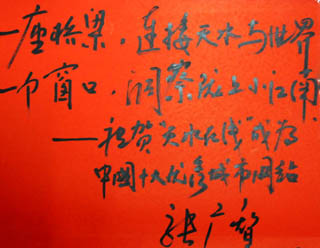 一座桥梁，连接天水与世界
一个窗口，洞察陇上小江南
——祝贺“天水在线”成为
中国十大优秀城市网站
张广智